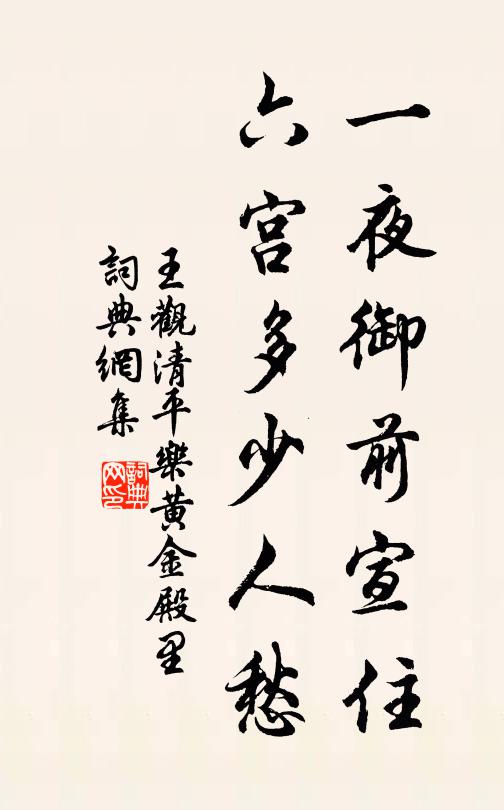 一夜御前宣住
六宮多少人愁
王觀清平樂黃金殿里
詞典網集
詞典網印